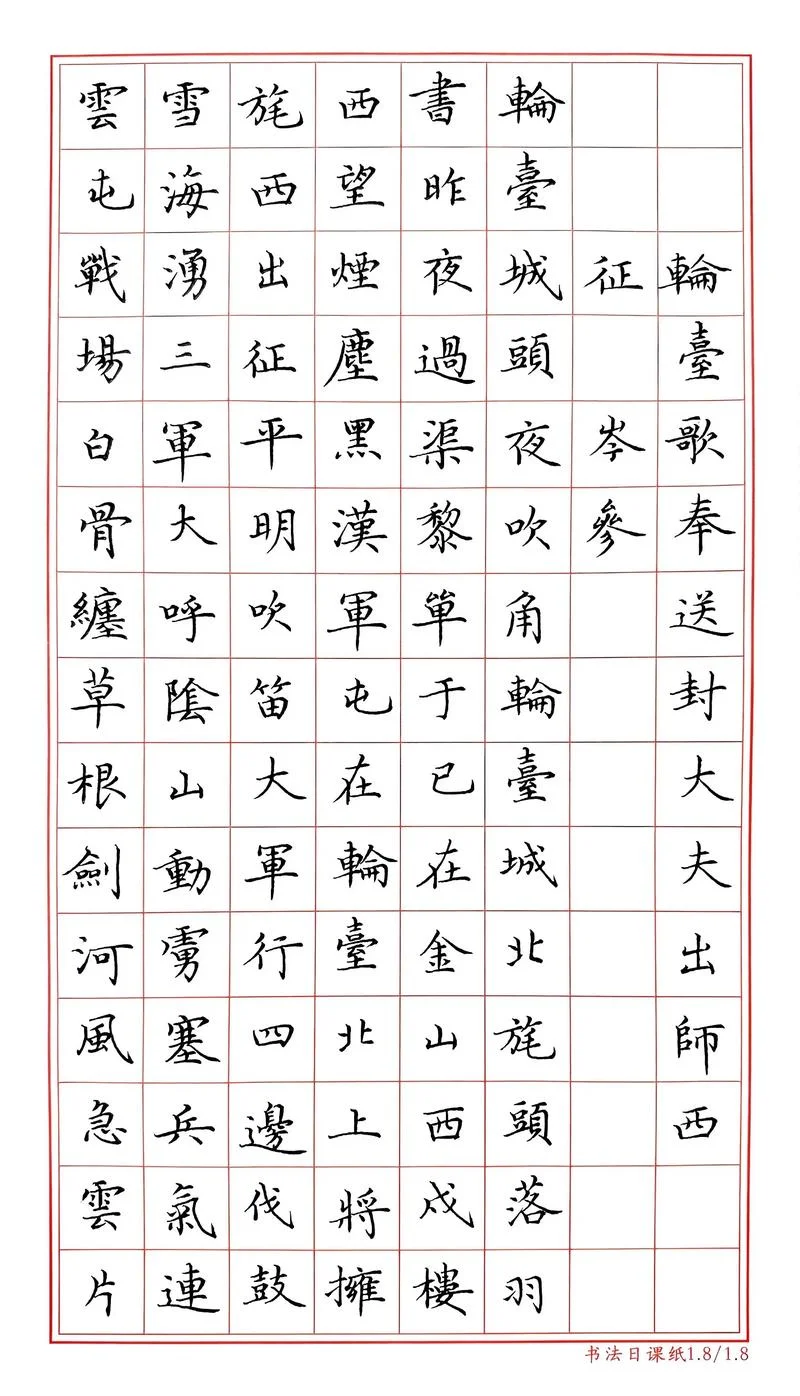 輪臺歌奉送封大夫出師西
征岑參
輪臺城頭夜吹角輪臺城北旄頭落羽
書昨夜過渠黎單于已在金山西戍樓
西望煙塵黑漢軍屯在輪臺北上將擁
旄西出征平明吹笛大軍行四邊伐鼓
雪海湧三軍大呼陰山動虜塞兵氣連
雲屯戰場白骨纏草根劍河風急雲片
书法日课纸1.8/1.8